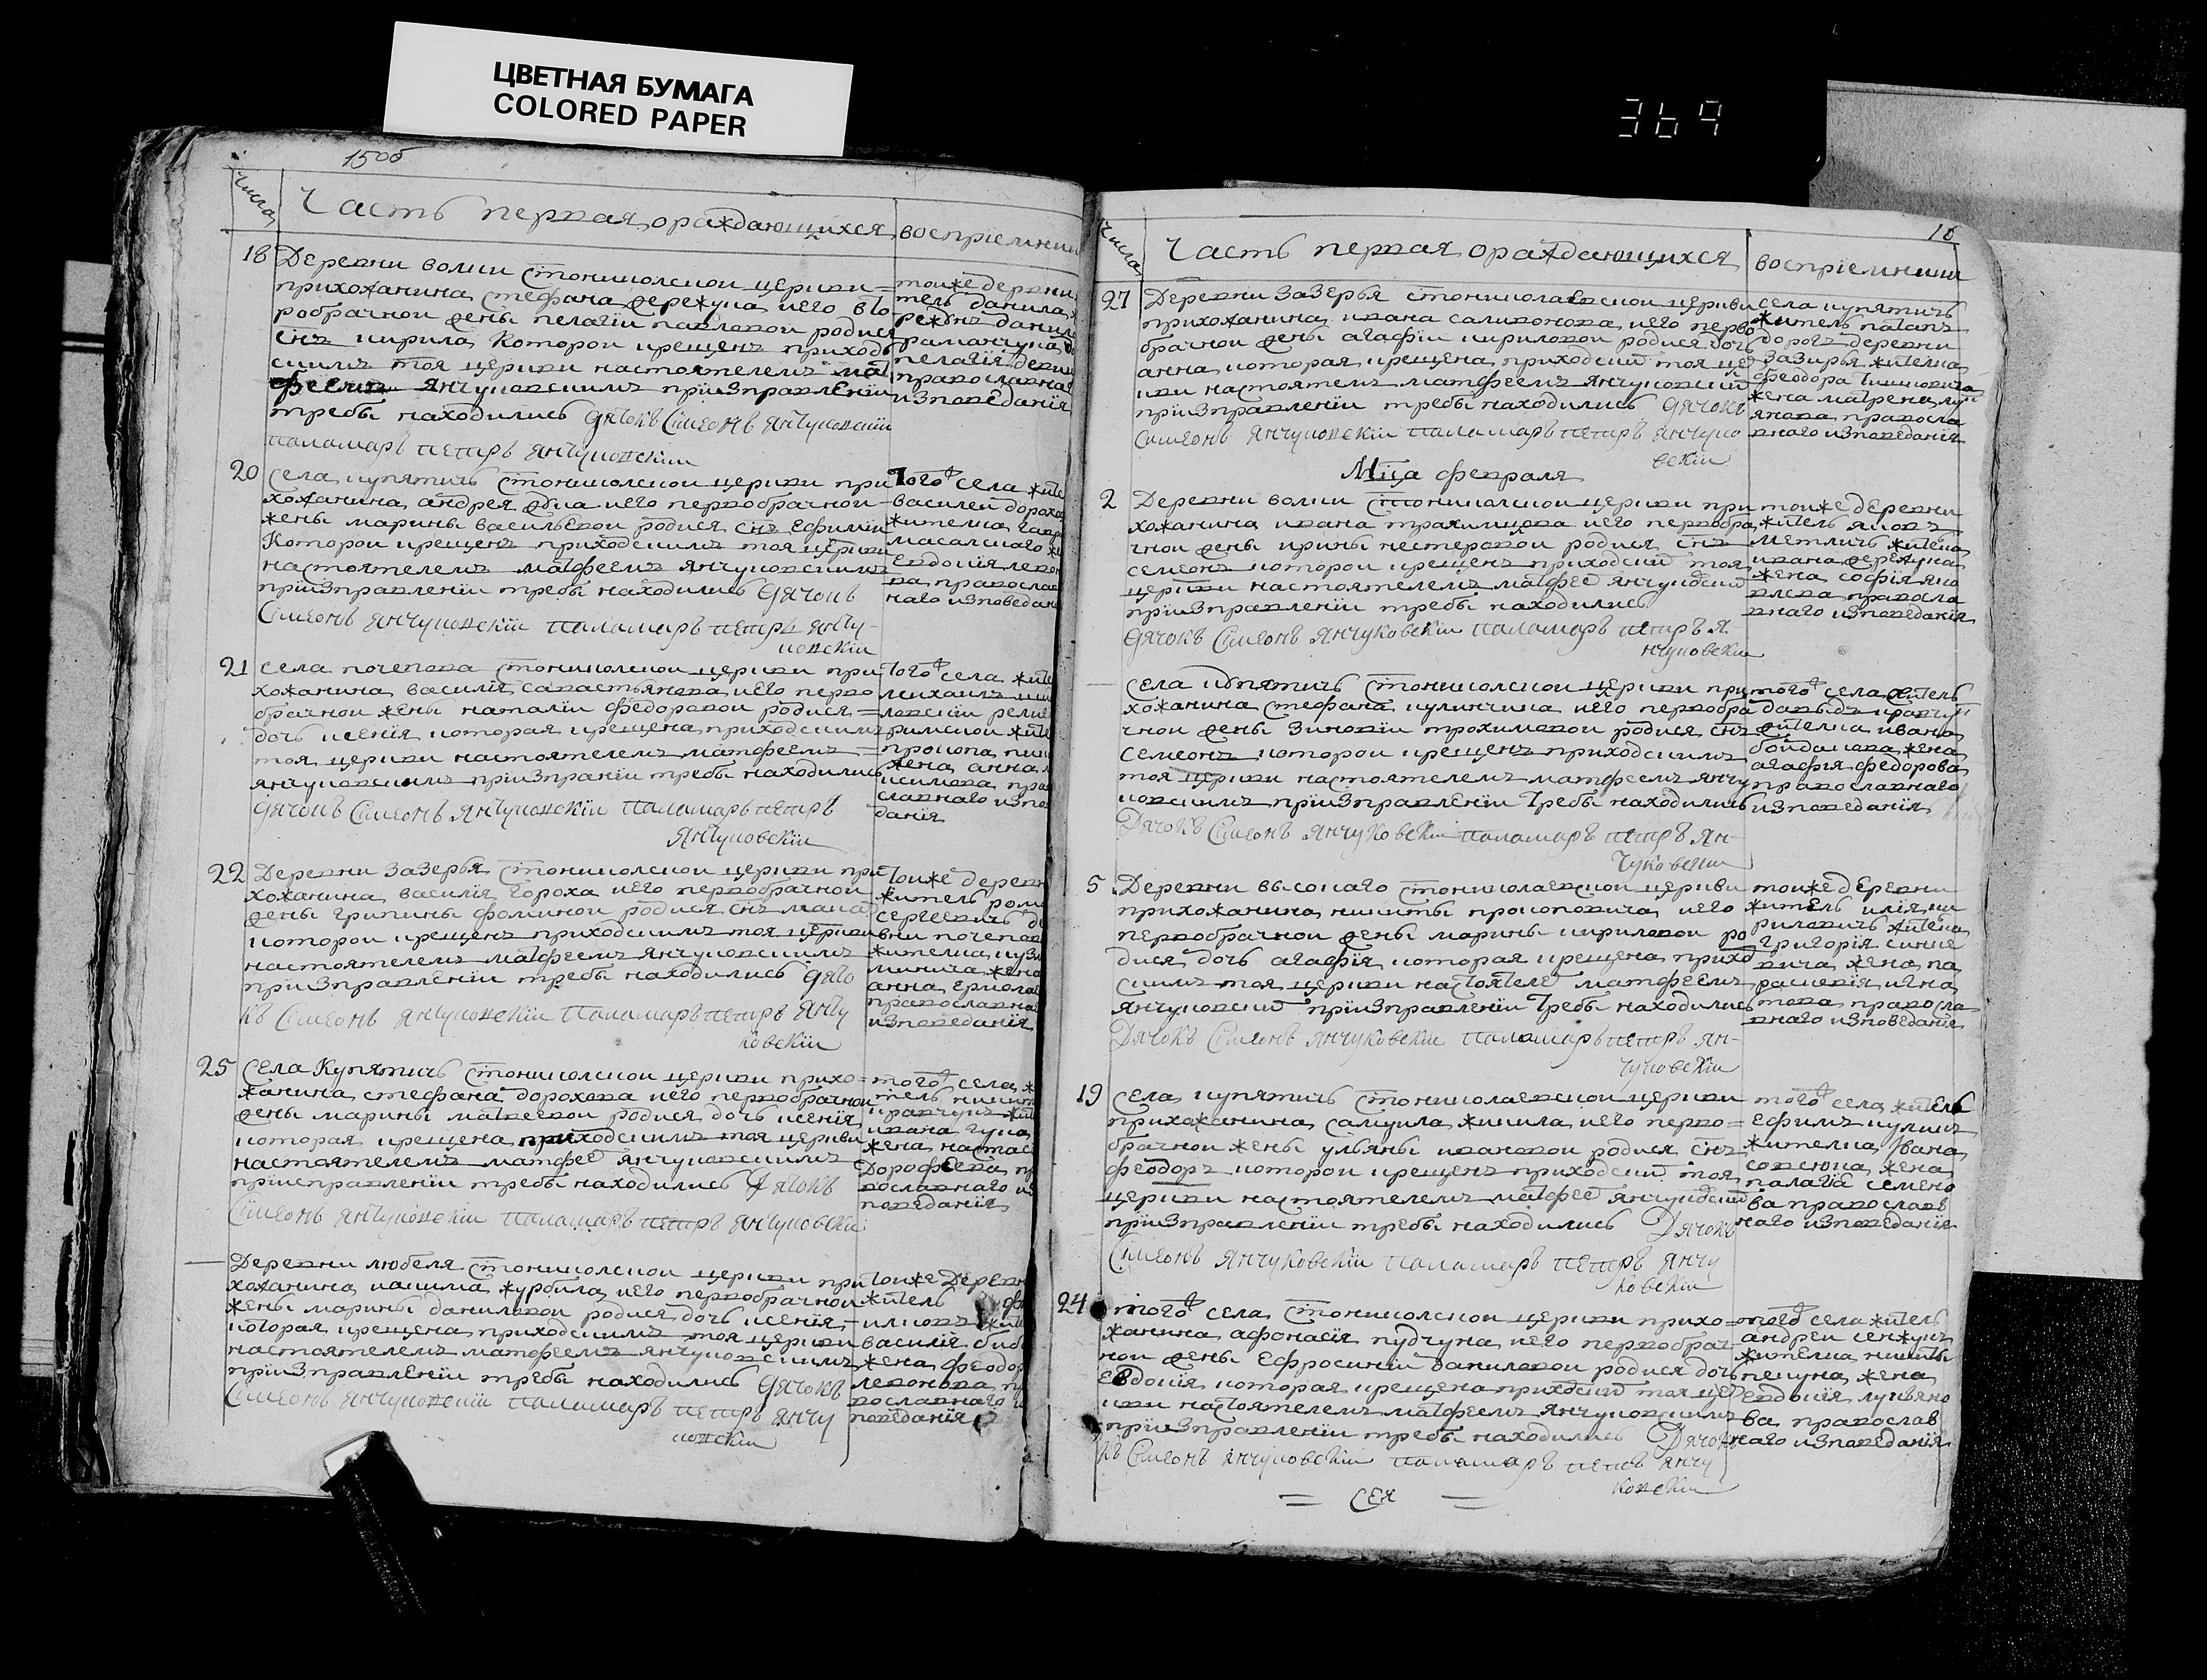 ЦВЕТНАЯ БУМАГА
COLORED PAPER
369
15об
числа
Часть первая ораждающихся
восприемники
18
Деревни волки стониколской церкви
прихожанина стефана дережука иего вто
робрачной жены пелагіи павловой родися
снъ кирила которой крещенъ приход
скимъ тоя церкви настоятелемъ мат
феемъ янчуковскимъ приизправленіи
требы находились дячокъ Симеонъ янчуковскій
паламаръ петръ янчуковскій
тойже деревни
тель данила
пелагія
православна
изповеданія
20
села купятичъ стониколской церкви при
хожанина андрея иего первобрачной
жены марины васильевой родися снъ ефимій
которой крещенъ приходскимъ тоя церкви
настоятелемъ матфеемъ янчуковскимъ
приизправленіи требы находились дячокъ
Симеонъ янчуковскій паламаръ петръ янчу
ковскій
того села жите
василей дорохо
жителка
масалского
евдокія
ва православ
наго изповедан
21
села почепова стониколской церкви при
хожанина василія савастьянова иего перво
брачной жены наталіи федоровой родися
дочь ксенія которая крещена приходскимъ
тоя церкви настоятелемъ матфеемъ
янчуковскимъ приизправніи требы находились
дячокъ Симеонъ янчуковскій паламаръ петръ
янчуковскій
того села жите
михаилъ
римской жите
прокопа
жена анна
славнаго изпо
данія
22
Деревни зазерья стониколской церкви при
хожанина василія гороха иего первобрачной
жены грипины фоминой родися снъ
которой крещенъ приходскимъ тоя церкви
настоятелемъ матфеемъ янчуковскимъ
приизправленіи требы находились дячо
къ Симеонъ янчуковскій паламаръ петръ янчу
ковскій
тойже деревн
житель рома
сергеевичъ де
вни почепов
жителка кузм
минича жена
анна ермола
православна
изповеданія
25
села Купятичъ стониколской церкви прихо
жанина стефана дорохова иего первобрачной
жены марины матвеевой родися дочь ксенія
которая крещена приходскимъ тоя церкви
настоятелемъ матфее янчуковскимъ
приисправленіи требы находились Дячокъ
Симеонъ янчуковскій паламаръ петръ янчуковскі
того села ж
тель никит
кравчукъ жит
ивана гука
жена настас
дорофеева пр
вославнаго из
поведанія
Деревни любеля стониколской церкви при
хожанина иакима журбила иего первобрачной
жены марины даниловой родися дочь ксенія
которая крещена приходскимъ тоя церкви
настоятелемъ матфеемъ янчуковскимъ
приизправленіи требы находились дячокъ
Симеонъ янчуковскій паламаръ петръ янчу
ковскій
тойже Деревн
житель
василія
жена феодор
левонова пр
вославнаго и
поведанія
16
числа
Часть первая ораждающихся
восприемники
27
Деревни Зазерья стониколаевской церкви
прихожанина ивана саливонова иего перво
брачной жены агафіи кириловой родися дочь
анна которая крещена приходский тоя це
кви настоятелемъ матфеемъ янчуковский
приизправленіи требы находились дячокъ
Симеонъ янчуковскій паламаръ петръ янчуко
вскій
села купятичъ
житель
дорохъ деревни
зазерья жителка
феодора
жена матрена лук
янова правосла
внаго изповеданія
Мца февраля
2
Деревни волки стониколской церкви при
хожанина ивана трахимцова иего первобра
чной жены ирины нестеровой родися снъ
семеонъ которой крещенъ приходский тоя
церкви настоятелемъ матфее янчуковский
приизправленіи требы находились
дячокъ Симеонъ янчуковскій паламаръ петръ я
нчуковскій
тойже деревни
житель яковъ
метличъ жителка
ивана дережука
жена софія яко
влева правосла
внаго изповеданія
села купятичъ стониколской церкви при
хожанина стефана куличика иего первобра
чной жены зиновіи трохимовой родися снъ
семеонъ которой крещенъ приходскимъ
тоя церкви настоятелемъ матфеемъ янчу
ковскимъ приизправленіи требы находились
Дячокъ Симеонъ янчуковскій паламаръ петръ ян
чуковскій
того села житель
давыдъ кравчу
жителка ивана
бойдакова жена
агафія федорова
православнаго
изповеданія
5
Деревни высокаго стониколаевской церкви
прихожанина никиты прокоповича иего
первобрачной жены марины кириловой ро
дися дочь агафія которая крещена приход
скимъ тоя церкви настоятеле матфеемъ
янчуковский приизправленіи требы находились
Дячокъ Симеонъ янчуковскій паламаръ петръ ян
чуковскій
тойже деревни
житель илія ки
риловичъ жителка
григорія синке
вича жена па
раскевія игна
това правосла
внаго изповеданія
19
села купятичъ стониколаевской церкви
прихажанина самуила жикила иего перво
брачной жены ульяны ивановой родися снъ
феодоръ которой крещенъ приходский тоя
церкви настоятелемъ матфее янчуковский
приизправленіи требы находились Дячокъ
Симеонъ янчуковскій паламаръ петръ янчу
ковскій
того села житель
ефимъ куликъ
жителка Ивана
совсюка жена
палагіа семено
ва православ
наго изповеданія
24
того села стониколской церкви прихо
жанина афонасія пудчука иего первобрач
ной жены Ефросиніи даниловой родися дочь
Евдокія которая крещена приходский тоя цер
кви настоятелемъ матфеемъ янчуковскимъ
приизправленіи требы находились Дячо
къ Симеонъ янчуковскій паламаръ петръ янчу
ковскій
того села житель
андрей сенжукъ
жителка никиты
пецука жена
евдокія лукьяно
ва православ
наго изповеданія
СЕЯ